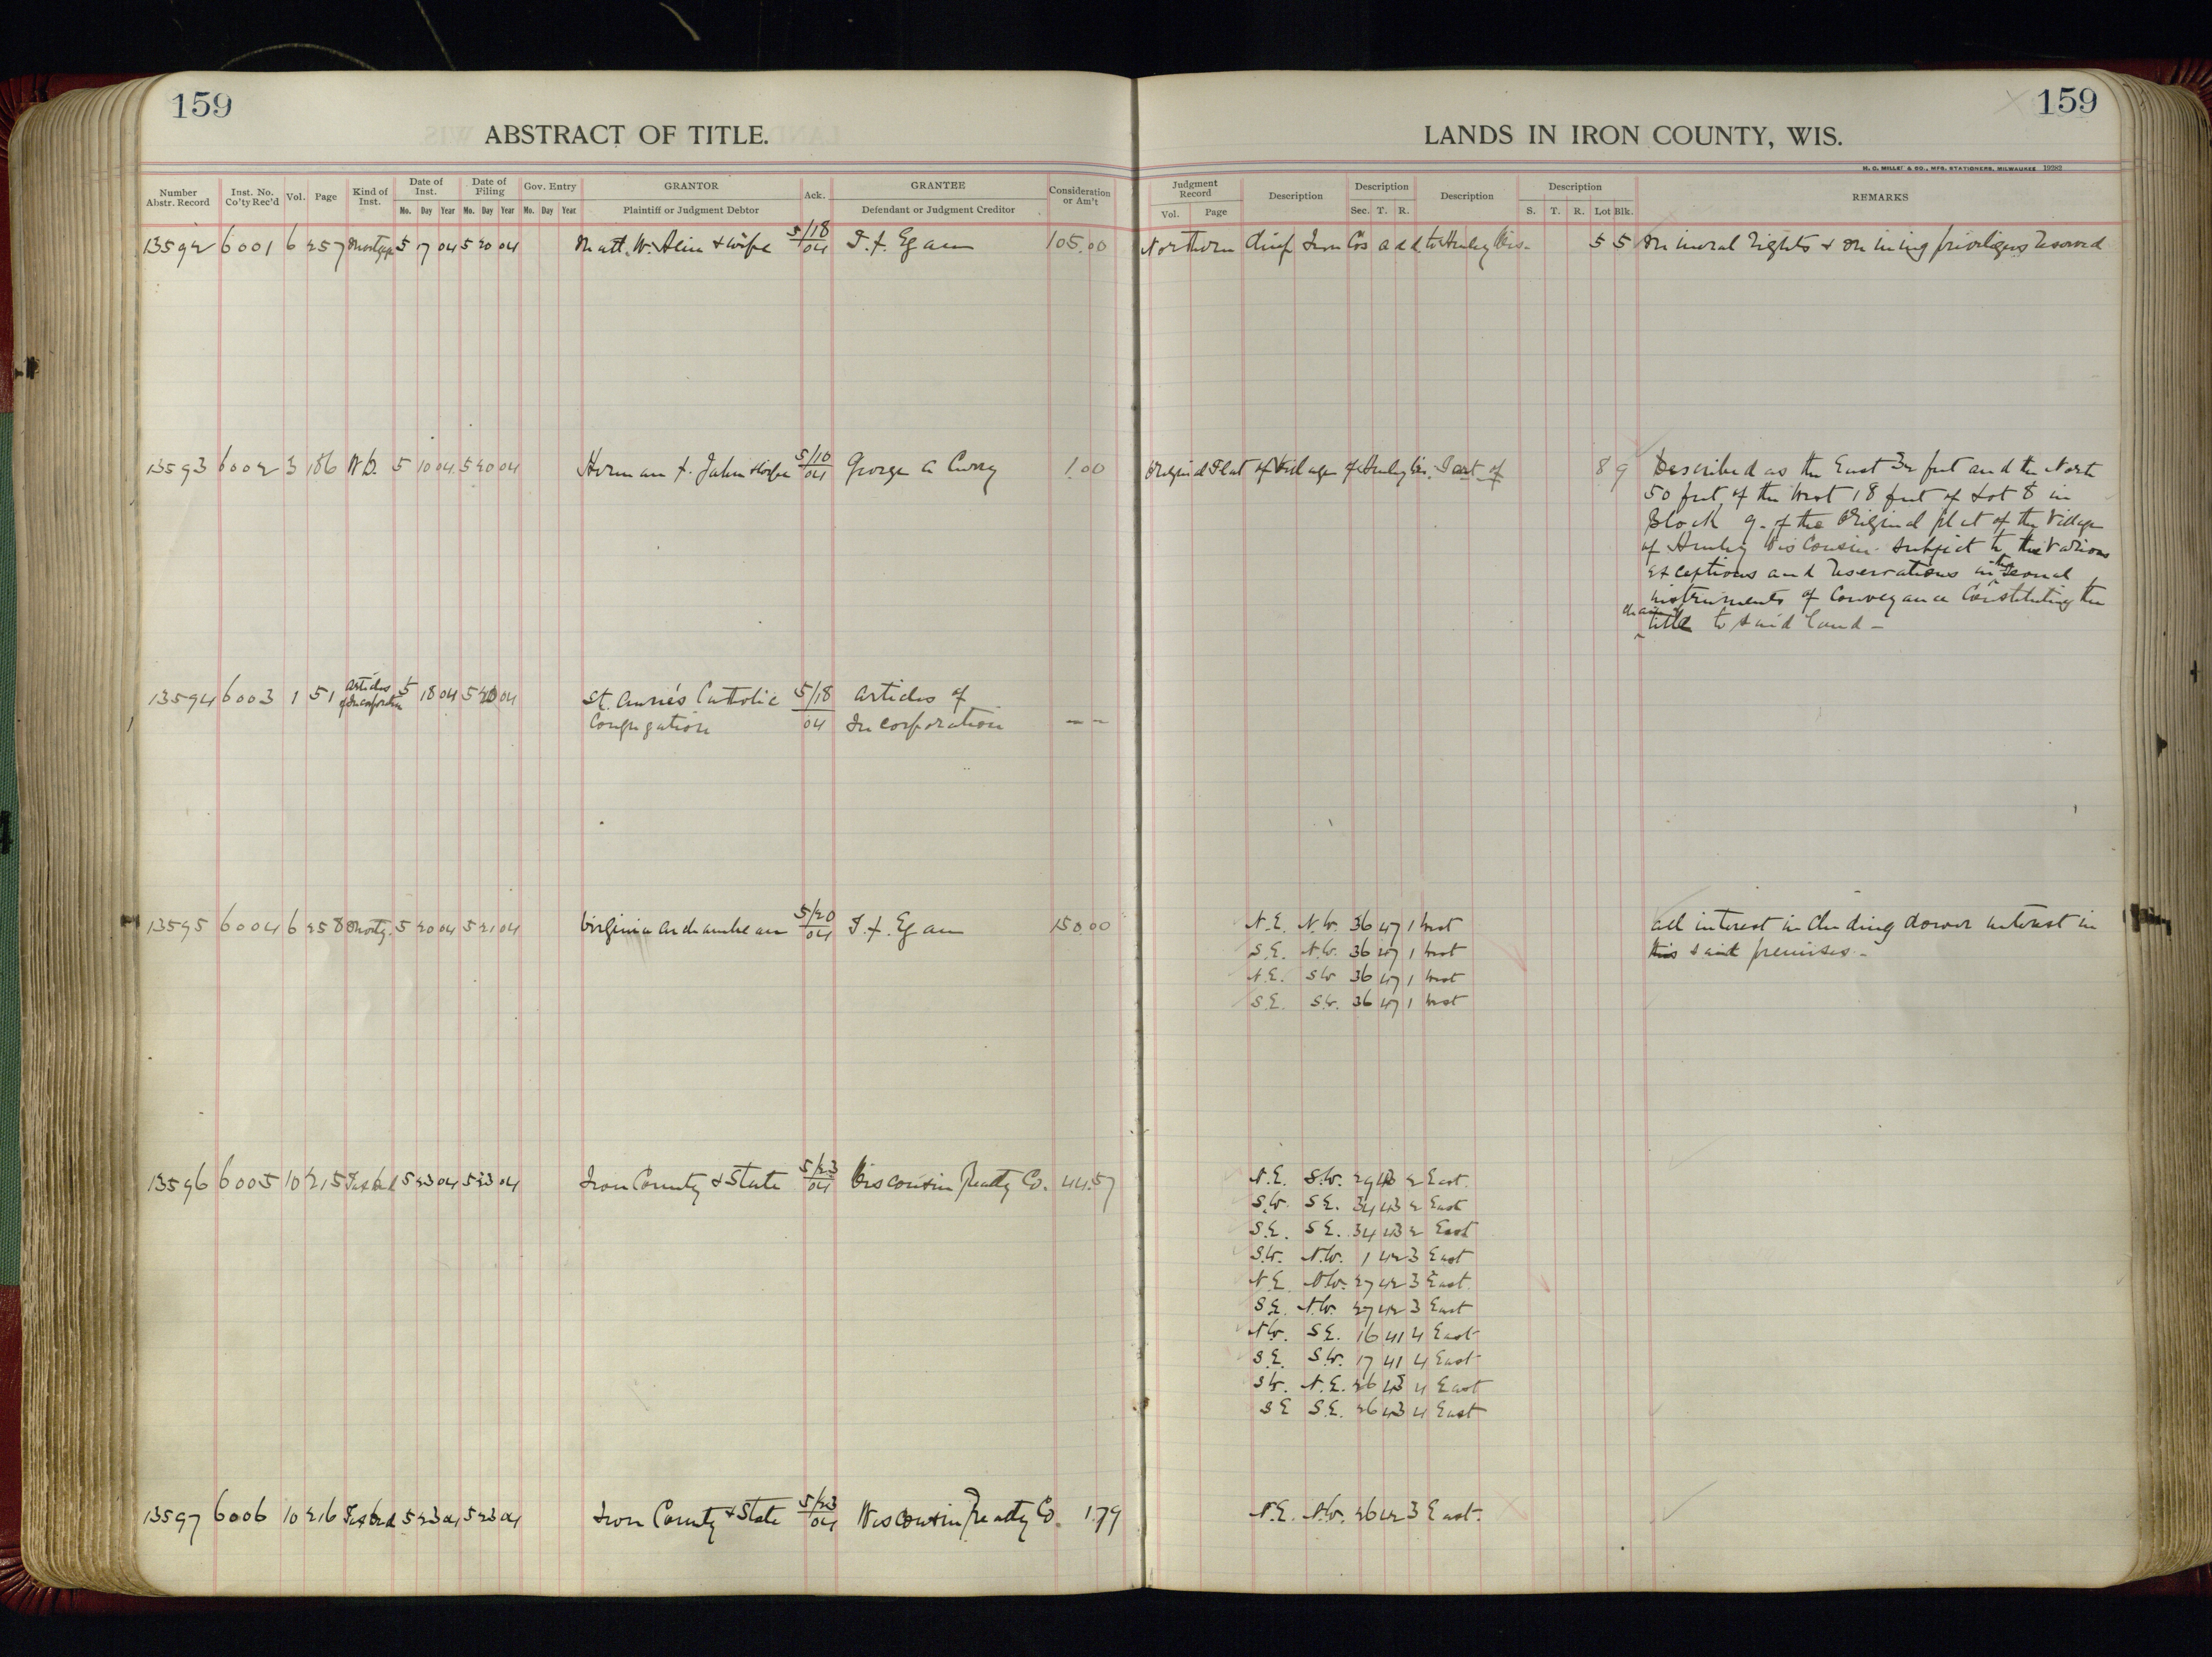 159
ABSTRACT OF TITLE.
159
LANDS IN IRON COUNTY, WIS.
H. C. MILLER & CO., MFG. STATIONERS, MILWAUKEE 19282
Number Abstr. Record | Inst. No. Co'ty Rec'd | Vol. | Page | Kind of Inst. | Date of Inst. Mo. Day Year | Date of Filing Mo. Day Year | Gov. Entry Mo. Day Year | GRANTOR Plaintiff or Judgment Debtor | Ack. | GRANTEE Defendant or Judgment Creditor | Consideration or Am't | Judgment Record Vol. Page | Description | Description Sec. T. R. | Description | Description S. T. R. Lot Blk. | REMARKS
13592 6001 6 257 Mortgage 5 17 04 5 20 04 Matt. W. & wife 5/18/04 T. F. Egan 105.00 Northern Chief Iron Co's add. to Hurley Wis. 5 5 Mineral rights & mining privileges reserved
13593 6002 3 186 W.D. 5 10 04 5 20 04 Herman F. Jahn & wife 5/10/04 George A Curry 1.00 Original Plat of Village of Hurley Wis. Part of 8 9 Described as the East 32 feet and the North
50 feet of the West 18 feet of Lot 8 in
Block 9. of the Original plat of the Village
of Hurley Wisconsin. subject to the various
exceptions and reservations in the several
instruments of conveyance constituting the
chain of title to said land -
13594 6003 1 51 Articles of Incorporation 5 18 04 5 20 04 St. Anne's Catholic 5/18/04 Articles of
Congregation Incorporation --
13595 6004 6 258 Mortg. 5 20 04 5 21 04 Virginia Archambeau 5/20/04 T. F. Egan 150.00 N.E. N.W. 36 47 1 West all interest including dower interest in
S.E. N.W. 36 47 1 West this said premises -
N.E. S.W. 36 47 1 West
S.E. S.W. 36 47 1 West
13596 6005 10 215 Tax Deed 5 23 04 5 23 04 Iron County & State 5/23/04 Wisconsin Realty Co. 44.57 N.E. S.W. 29 43 2 East.
S.W. S.E. 34 43 2 East
S.E. S.E. 34 43 2 East
S.W. N.W. 1 42 3 East
N.E. N.W. 27 42 3 East.
S.E. N.W. 27 42 3 East
N.W. S.E. 16 41 4 East
S.E. S.W. 17 41 4 East
S.W. N.E. 26 43 4 East
S.E. S.E. 26 43 4 East
13597 6006 10 216 Tax Deed 5 23 04 5 23 04 Iron County & State 5/23/04 Wisconsin Realty Co. 1.79 N.E. N.W. 26 42 3 East.